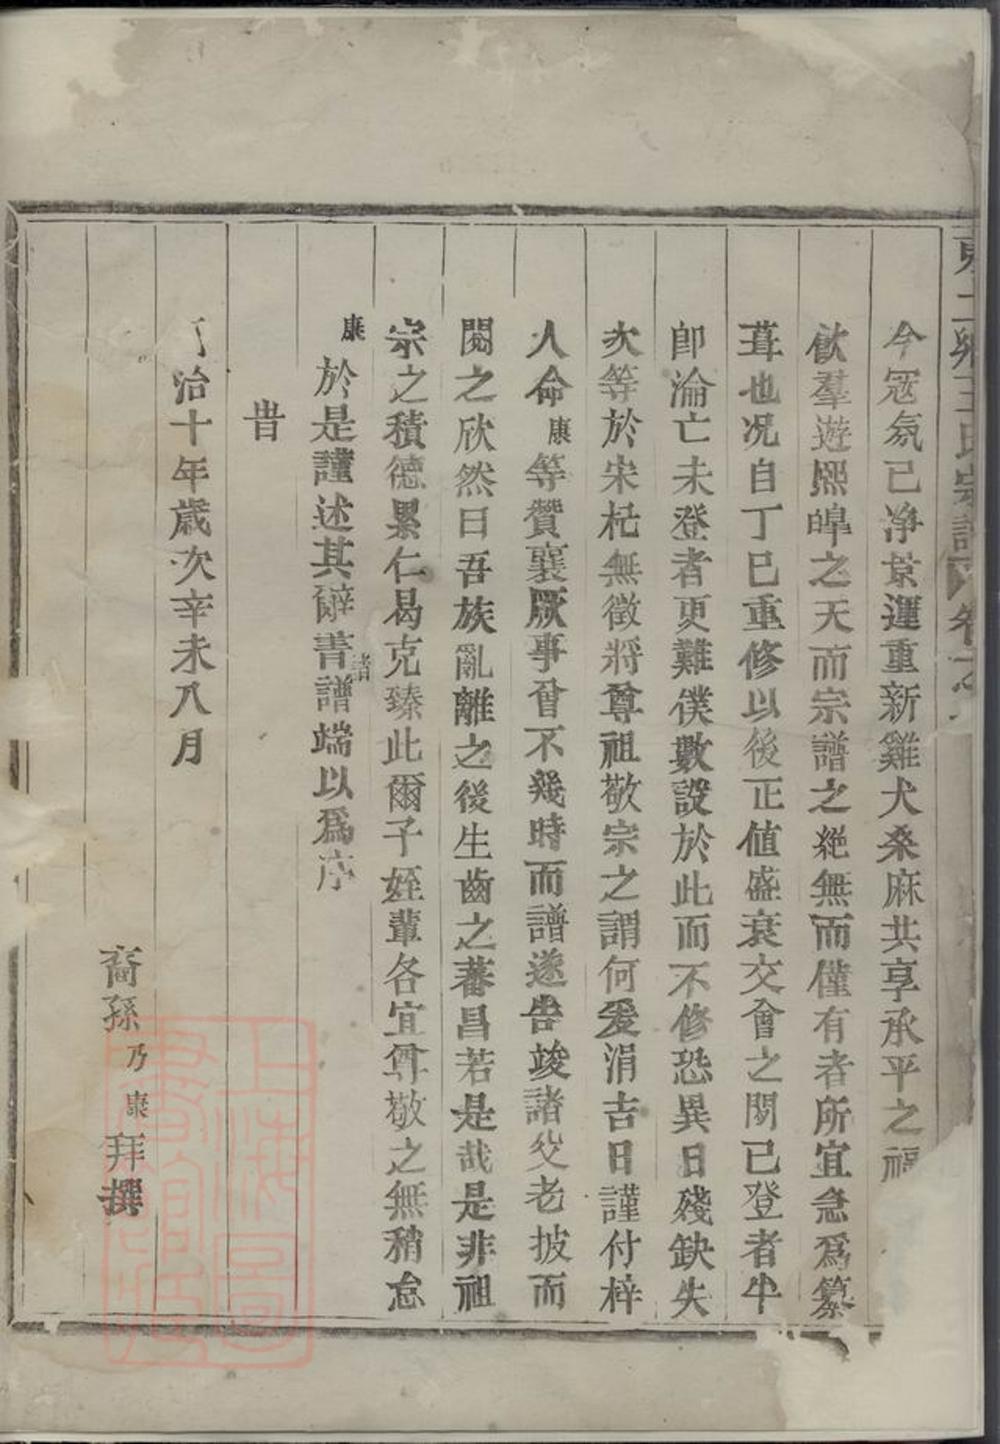 今寇氛已净景運重新雞犬桑麻共享承平之福
飲羣遊熙皞之天而宗譜之絶無而僅有者所宜急爲纂
葺也况自丁巳重修以後正值盛衰交會之際已登者半
卽淪亡未登者更難僕數設於此而不修恐異日殘缺失
次等於宋杞無徵將尊祖敬宗之謂何爰涓吉日謹付梓
人命康等贊襄厥事曾不幾時而譜遂告竣諸父老披而
閱之欣然曰吾族亂離之後生齒之蕃昌若是哉是非祖
宗之積德累仁曷克臻此爾子姪輩各宜尊敬之無稍怠
康於是謹述其辭書諸譜端以爲序
旹
治十年歲次辛未八月
裔孫乃康拜撰
王氏宗譜 卷之
上海圖書館藏